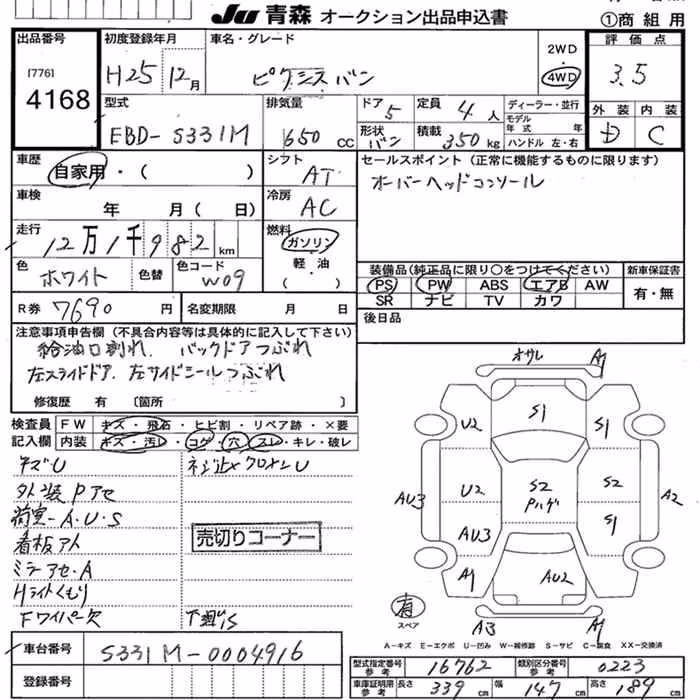 JU 青森 オークション出品申込書
①商組用
出品番号
[776]
4168
初度登録年月
H25年12月
車名・グレード
ピクシスバン
2WD
4WD
評価点
3.5
外装 内装
D C
型式
EBD-S331M
排気量
650 cc
ドア 5
形状 バン
定員 4人
積載 350kg
ディーラー・並行
モデル年式 年
ハンドル 左・右
車歴
自家用・( )
シフト
AT
セールスポイント(正常に機能するものに限ります)
オーバーヘッドコンソール
車検
年 月(日)
冷房
AC
走行
12万1千982km
燃料
ガソリン
軽・油
( )
色
ホワイト
色替
色コード
W09
装備品(純正品に限り○をつけてください)
PS PW ABS エアB AW
SR ナビ TV カワ
新車保証書
有・無
R券 7690
名変期限 月 日
後日品
注意事項申告欄(不具合内容等は具体的に記入して下さい)
給油口割れ. バックドアつぶれ
左スライドドア. 左サイドシールつぶれ
修復歴 有 〔箇所 〕
検査員記入欄
FW キズ・飛石・ヒビ割・リペア跡・×要
内装 キズ・汚レ・コゲ・穴・スレ・キレ・破レ
キズU
ネジ止メクロメンU
外装Pアセ
荷室-A.U.S
看板アト
ミラーアセ.A
Hライトくもり
Fワイパー欠
下廻りS
売切りコーナー
オサレ A1
S1
U2
S1
AU3
U2
S2
Pハゲ
S2
A2
AU3
S1
A1
AU2
A3 A1
有
スペア
A-キズ E-エクボ U-凹み W-補修跡 S-サビ C-腐食 XX-交換済
車台番号
S331M-0004916
登録番号
型式指定番号 参考 16762
類別区分番号 参考 0223
車庫証明用 参考 長さ 339cm 幅 147cm 高さ 189cm